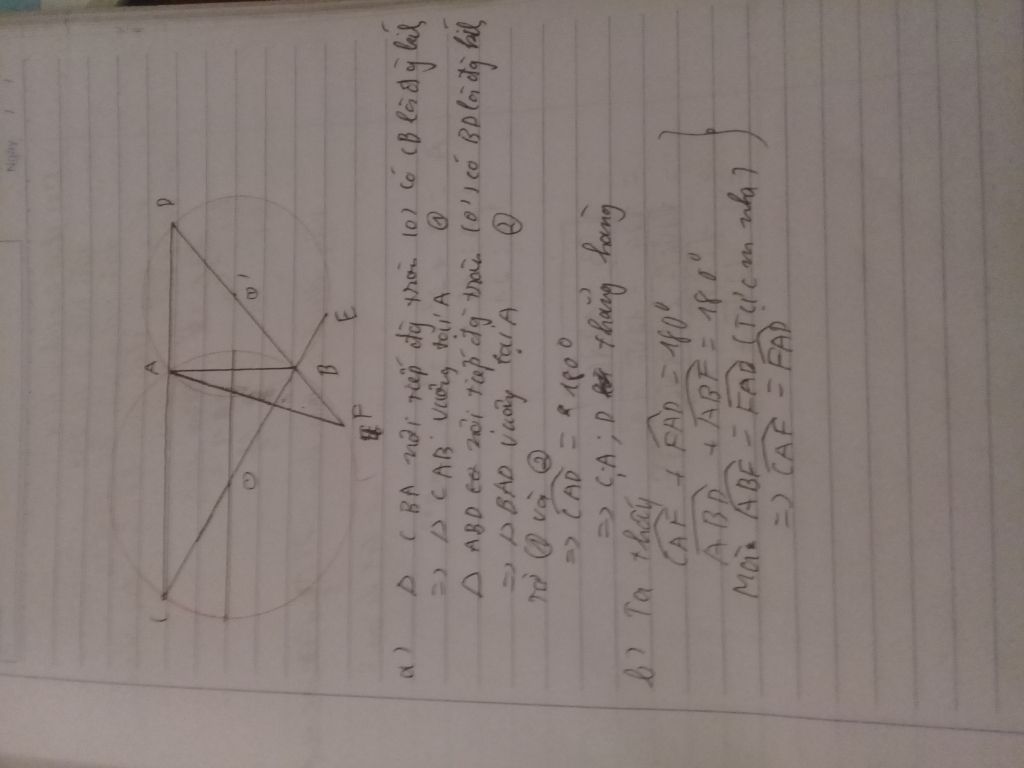 C
A
D
O
O'
B
E
F
a) △ CBA nội tiếp đg tròn (O) có CB là đg kính
=> △ CAB vuông tại A ①
△ ABD nội tiếp đg tròn (O') có BD là đg kính
=> △ BAD vuông tại A ②
Từ ① và ②
=> CAD = 180°
=> C, A, D thẳng hàng
b) Ta thấy
CAF + FAD = 180°
ABD + ABF = 180°
Mà ABF = FAD (Tự cm nha)
=> CAF = FAD